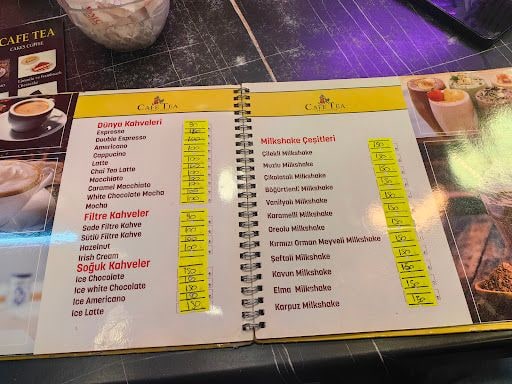 CAFE TEA
CAKES COFFEE
CAFE TEA
Dünya Kahveleri
Espresso 90
Double Espresso
Americano 100
Cappucino
Latte 100
Chai Tea Latte
Macchiato
Caramel Macchiato
White Chocolate Mocha
Mocha 100
Filtre Kahveler
Sade Filtre Kahve 90
Sütlü Filtre Kahve 100
Hazelnut 100
Irish Cream
Soğuk Kahveler
Ice Chocolate 150
Ice white Chocolate
Ice Americano 130
Ice Latte 130
CAFE TEA
Milkshake Çeşitleri
Çilekli Milkshake 150
Muzlu Milkshake 150
Çikolatalı Milkshake 150
Böğürtlenli Milkshake 150
Vanilyalı Milkshake 150
Karamelli Milkshake 150
Oreolu Milkshake 150
Kırmızı Orman Meyveli Milkshake 150
Şeftali Milkshake 150
Kavun Milkshake 150
Elma Milkshake 150
Karpuz Milkshake 150